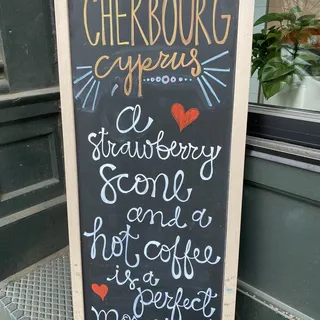 CHERBOURG
cyprus
a
strawberry
scone
and a
hot coffee
is a
perfect